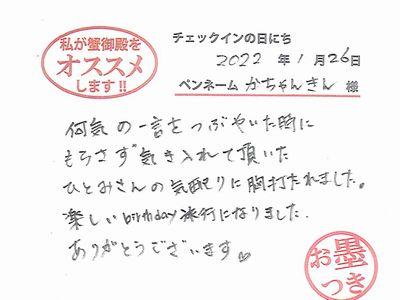 私が蟹御殿を
オススメ
します!!
チェックインの日にち
2022 年 1 月 26日
ペンネーム かちゃんきん 様
何気の一言をつぶやいた時に
もらさず気き入れて頂いた
ひとみさんの気配りに胸打たれました。
楽しいbirthday旅行になりました.
ありがとうございます♡
お墨
つき